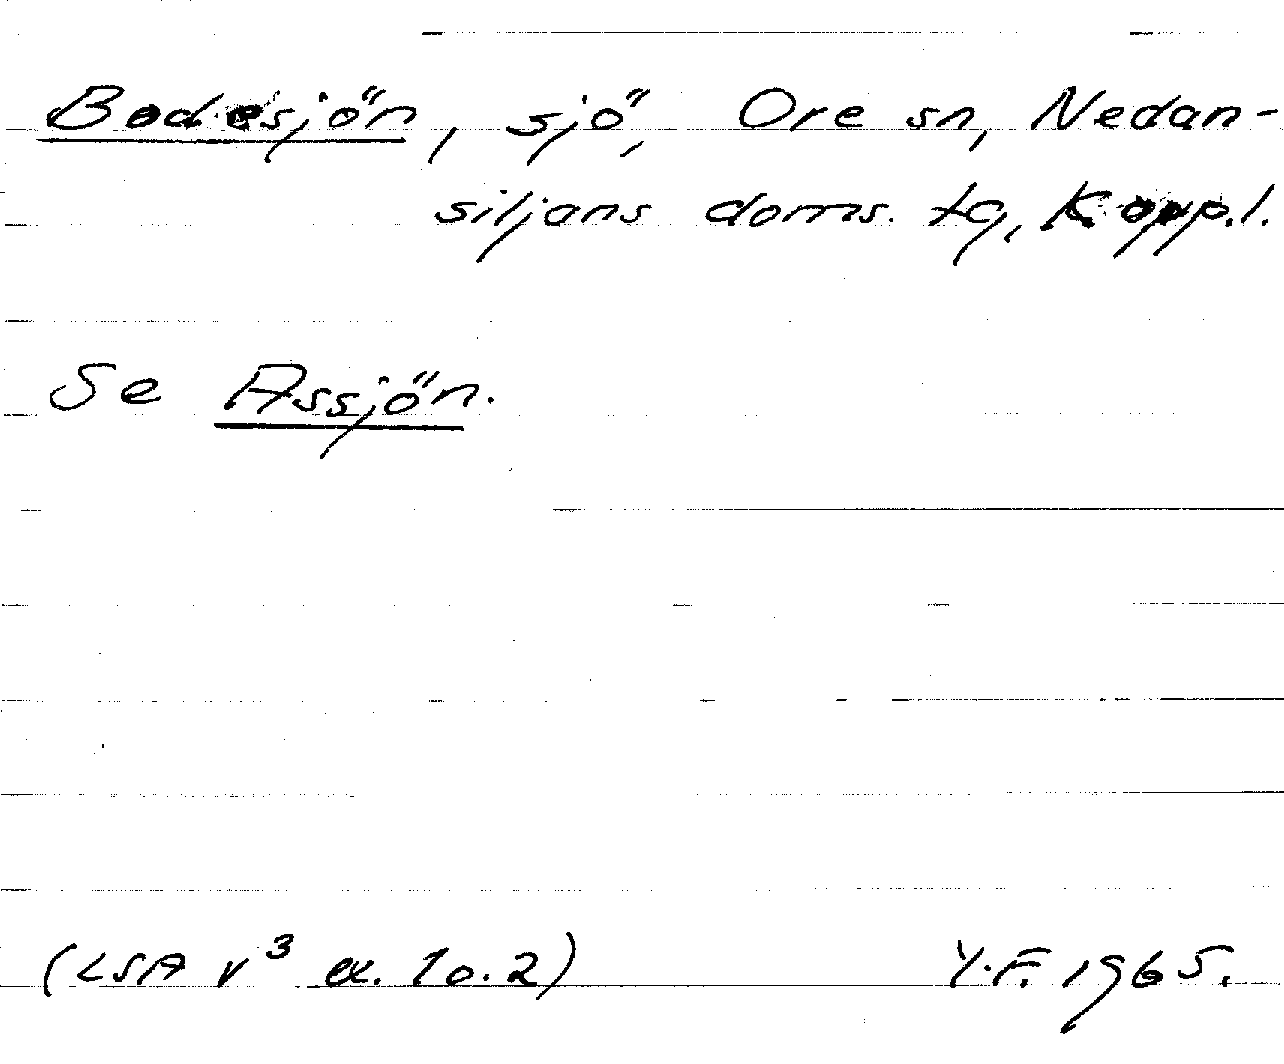 Bodesjön, sjö, Ore sn, Nedan-
siljans doms. tg, Kopp.l.
Se Assjön.
(LSA v³ ex. 1 o. 2) Y.F. 1965.